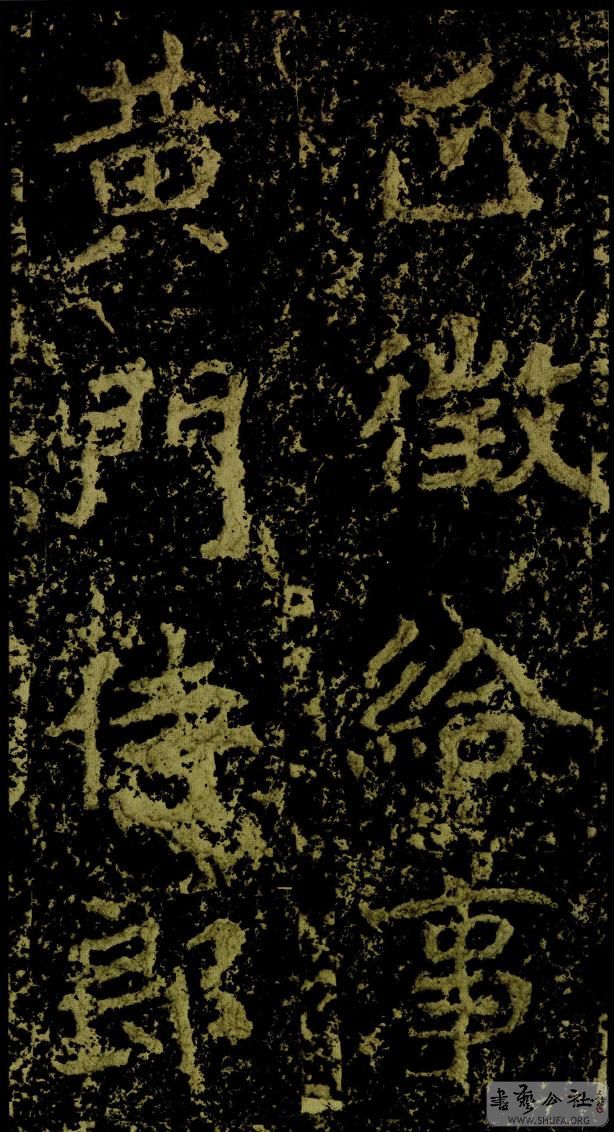 徵給事
黃門侍郎
書藝公社
WWW.SHUFA.ORG